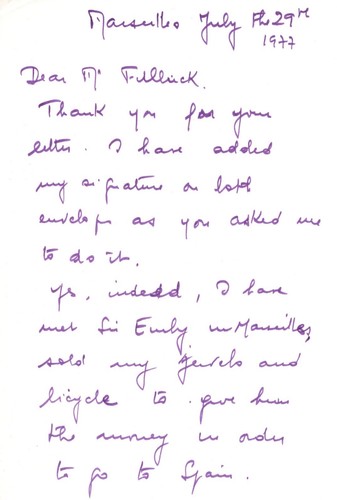 Marseilles July the 29th
1977
Dear Mr Fillinck.
Thank you for your
letter. I have added
my signature on both
envelops as you asked me
to do it.
Yes, indeed, I have
met Sir Emby in Marseilles,
sold my jewels and
bicycle to give him
the money in order
to go to Spain.